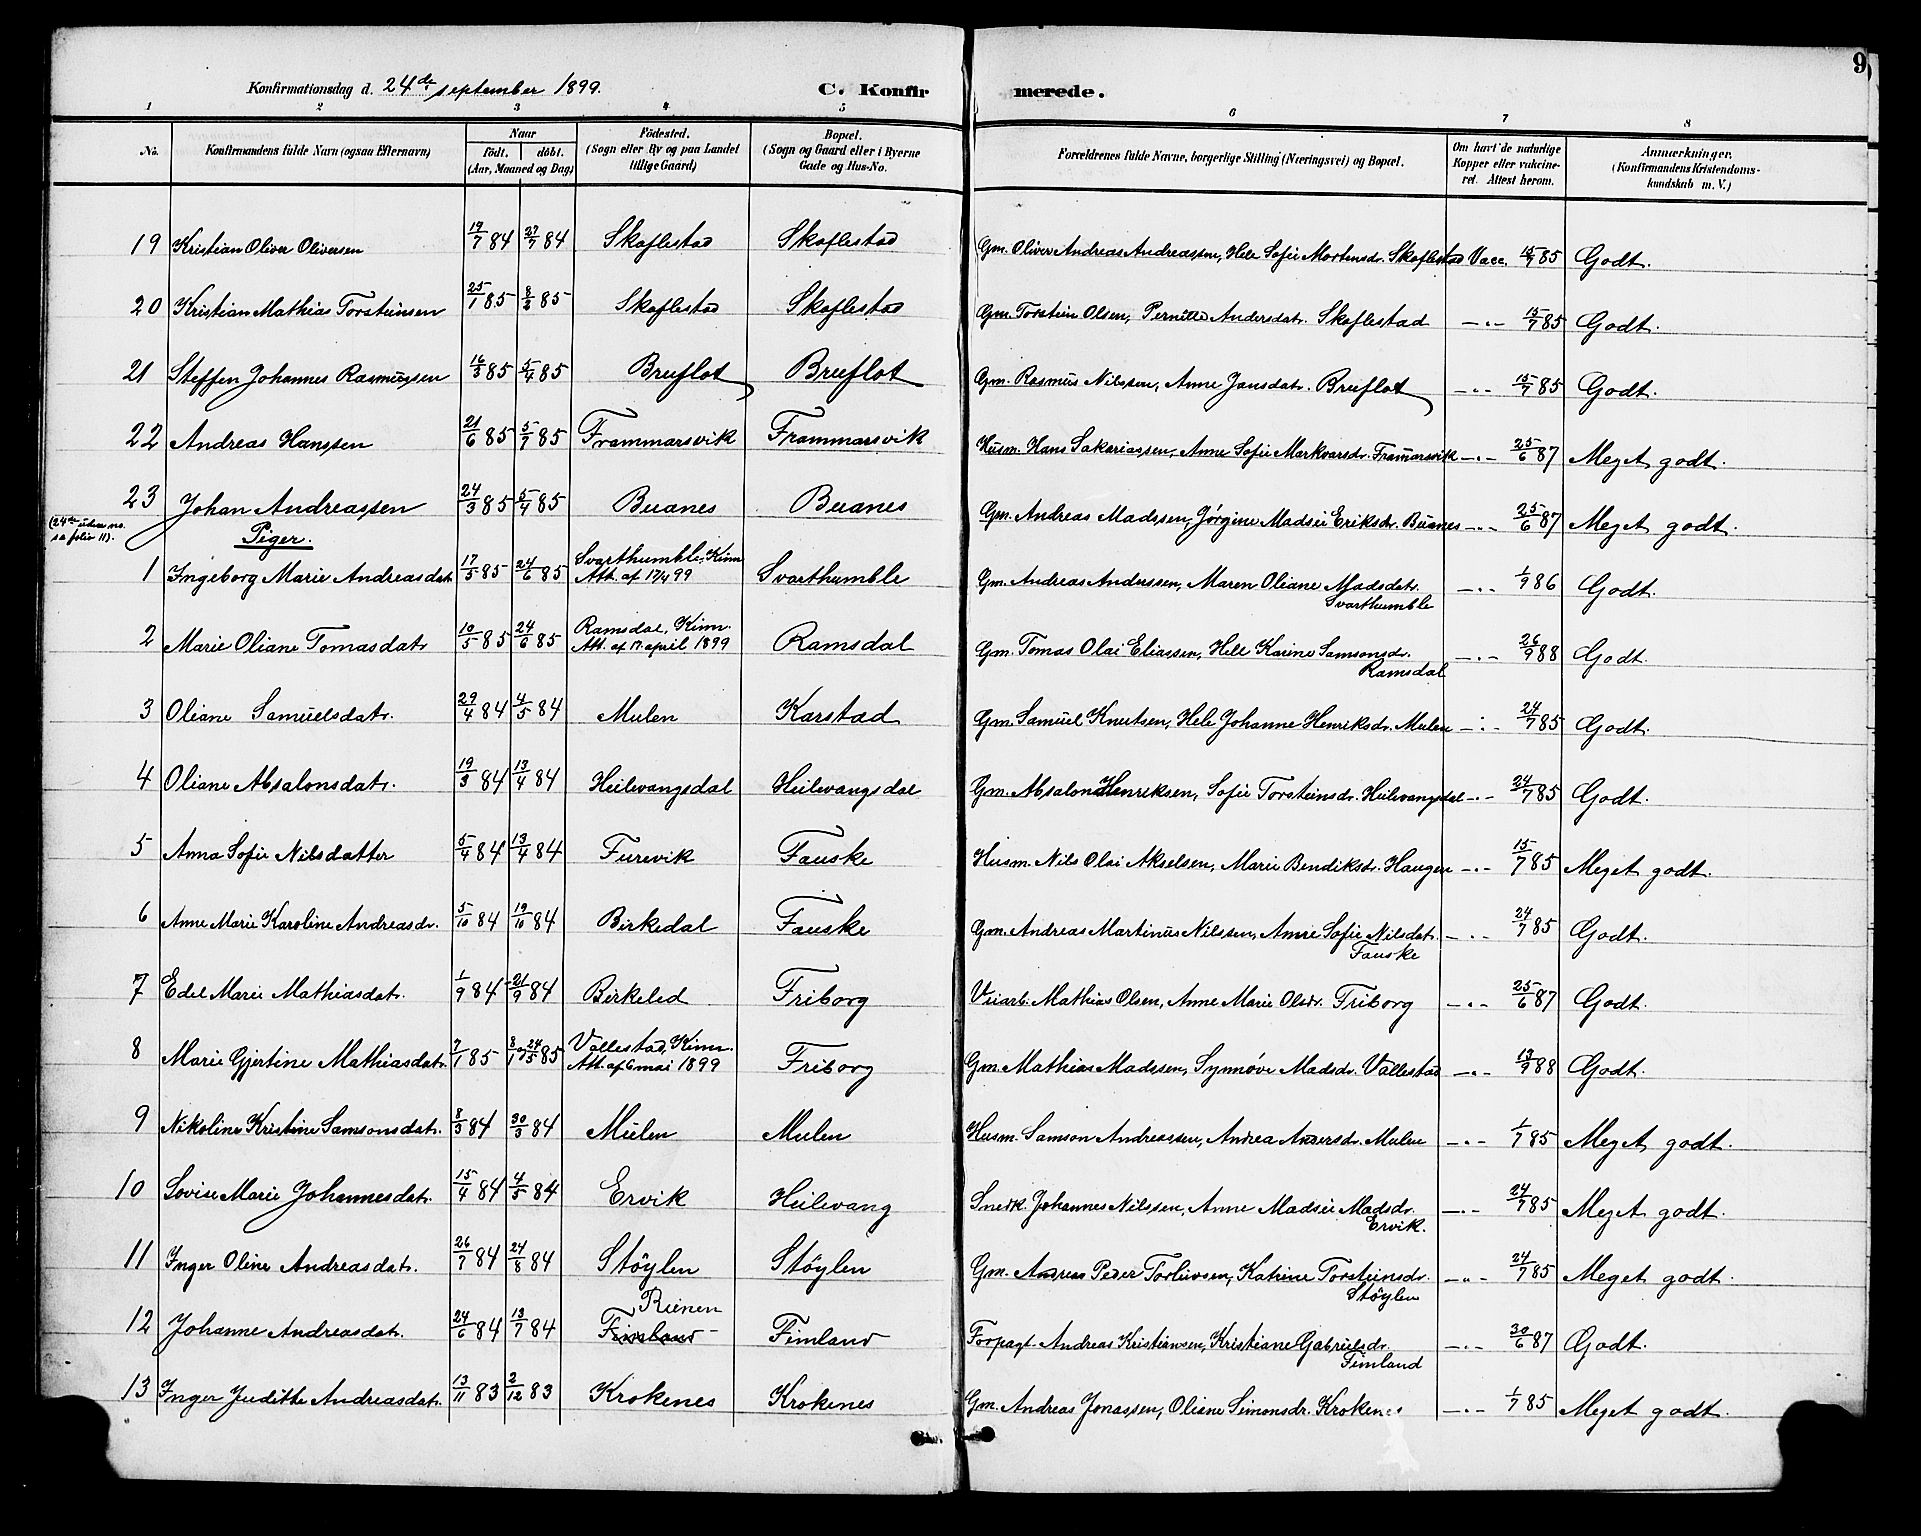 9
Konfirmationsdag d. 24de september 1899.
C. Konfir
merede.
1 2 3 4 5 6 7 8
No.
Konfirmandens fulde Navn (ogsaa Efternavn)
Naar
födt. döbt.
(Aar, Maaned og Dag)
Födested.
(Sogn eller By og paa Landet
tillige Gaard)
Bopæl.
(Sogn og Gaard eller i Byerne
Gade og Hus-No.
Forældrenes fulde Navne, borgerlige Stilling (Næringsvei) og Bopæl.
Om havt de naturlige
Kopper eller vakcine-
ret. Attest herom.
Anmærkninger.
(Konfirmandens Kristendoms-
kundskab m. V.)
19 Kristian Oliver Oliversen 19/7 84 27/7 84 Skaflestad Skaflestad Gm. Oliver Andreas Andreassen, Hele Sofie Mortensdr. Skaflestad Vacc. 15/7 85 Godt.
20 Kristian Mathias Torsteinsen 25/1 85 8/3 85 Skaflestad Skaflestad Gm. Torstein Olsen, Pernille Andersdatr. Skaflestad —"— 15/7 85 Godt.
21 Steffen Johannes Rasmussen 16/3 85 5/4 85 Bruflot Bruflot Gm. Rasmus Nilssen, Anne Jansdatr. Bruflot —"— 15/7 85 Godt.
22 Andreas Hanssen 21/6 85 5/7 85 Frammarsvik Frammarsvik Husm. Hans Sakariassen, Anne Sofie Markvarsdr. Framarsvik —"— 25/6 87 Meget godt.
23 Johan Andreassen 24/3 85 5/4 85 Buanes Buanes Gm. Andreas Madssen, Jørgine Madsie Eriksdr. Buanes —"— 25/6 87 Meget godt.
(24de uden no.
sa folio 11).
Piger.
1 Ingeborg Marie Andreasdatr. 17/5 85 24/6 85 Svarthumble, Kinn Att. af 17/4 99 Svarthumble Gm. Andreas Anderssen, Maren Oliane Madsdatr. Svarthumble —"— 1/9 86 Godt.
2 Marie Oliane Tomasdatr. 10/5 85 24/6 85 Ramsdal, Kinn. Att. af 17. april 1899 Ramsdal Gm. Tomas Olai Eliassen, Hele Karine Samsonsdr. Ramsdal —"— 26/9 88 Godt.
3 Oliane Samuelsdatr. 29/4 84 4/5 84 Mulen Karstad Gm. Samuel Knutsen, Hele Johanne Henriksdr. Mulen —"— 24/7 85 Godt.
4 Oliane Absalonsdatr. 19/3 84 13/4 84 Heilevangsdal Heilevangsdal Gm. Absalon Henriksen, Sofie Torsteinsdr. Heilevangsdal —"— 24/7 85 Godt.
5 Anna Sofie Nilsdatter 5/4 84 13/4 84 Furevik Fauske Husm. Nils Olai Akselsen, Marie Bendiksdr. Haugen —"— 15/7 85 Meget godt.
6 Anne Marie Karoline Andreasdr. 5/10 84 19/10 84 Birkedal Fauske Gm. Andreas Martinus Nilssen, Anne Sofie Nilsdatr. Fauske —"— 24/7 85 Godt.
7 Edel Marie Mathiasdatr. 1/9 84 21/9 84 Birkeled Friborg Veiarb. Mathias Olsen, Anne Marie Olsdr. Friborg —"— 25/6 87 Godt.
8 Marie Gjertine Mathiasdatr. 7/1 85 8/1 24/5 85 Vallestad, Kinn. Att. af 6 mai 1899 Friborg Gm. Mathias Madssen, Synnøve Madsdr. Vallestad —"— 19/9 88 Godt.
9 Nikoline Kristine Samsonsdatr. 8/3 84 30/3 84 Mulen Mulen Husm. Samson Andreassen, Andrea Andersdr. Mulen —"— 1/7 85 Meget godt.
10 Lovise Marie Johannesdatr. 15/4 84 4/5 84 Ervik Heilevang Snedk. Johannes Nilssen, Anne Madsie Madsdr. Ervik. —"— 24/7 85 Meget godt.
11 Inger Oline Andreasdatr. 26/7 84 24/8 84 Støylen Støylen Gm. Andreas Peder Torleivsen, Katrine Torsteinsdr. Støylen —"— 24/7 85 Meget godt.
12 Johanne Andreasdatr. 24/6 84 13/7 84 Rienen Fimland Fimland Forpagt. Andreas Kristiansen, Kristiane Gabrielsdr. Fimland —"— 30/6 87 Godt.
13 Inger Judithe Andreasdatr. 13/11 83 2/12 83 Krokenes Krokenes Gm. Andreas Jonassen, Oliane Simonsdr. Krokenes —"— 1/7 85 Meget godt.